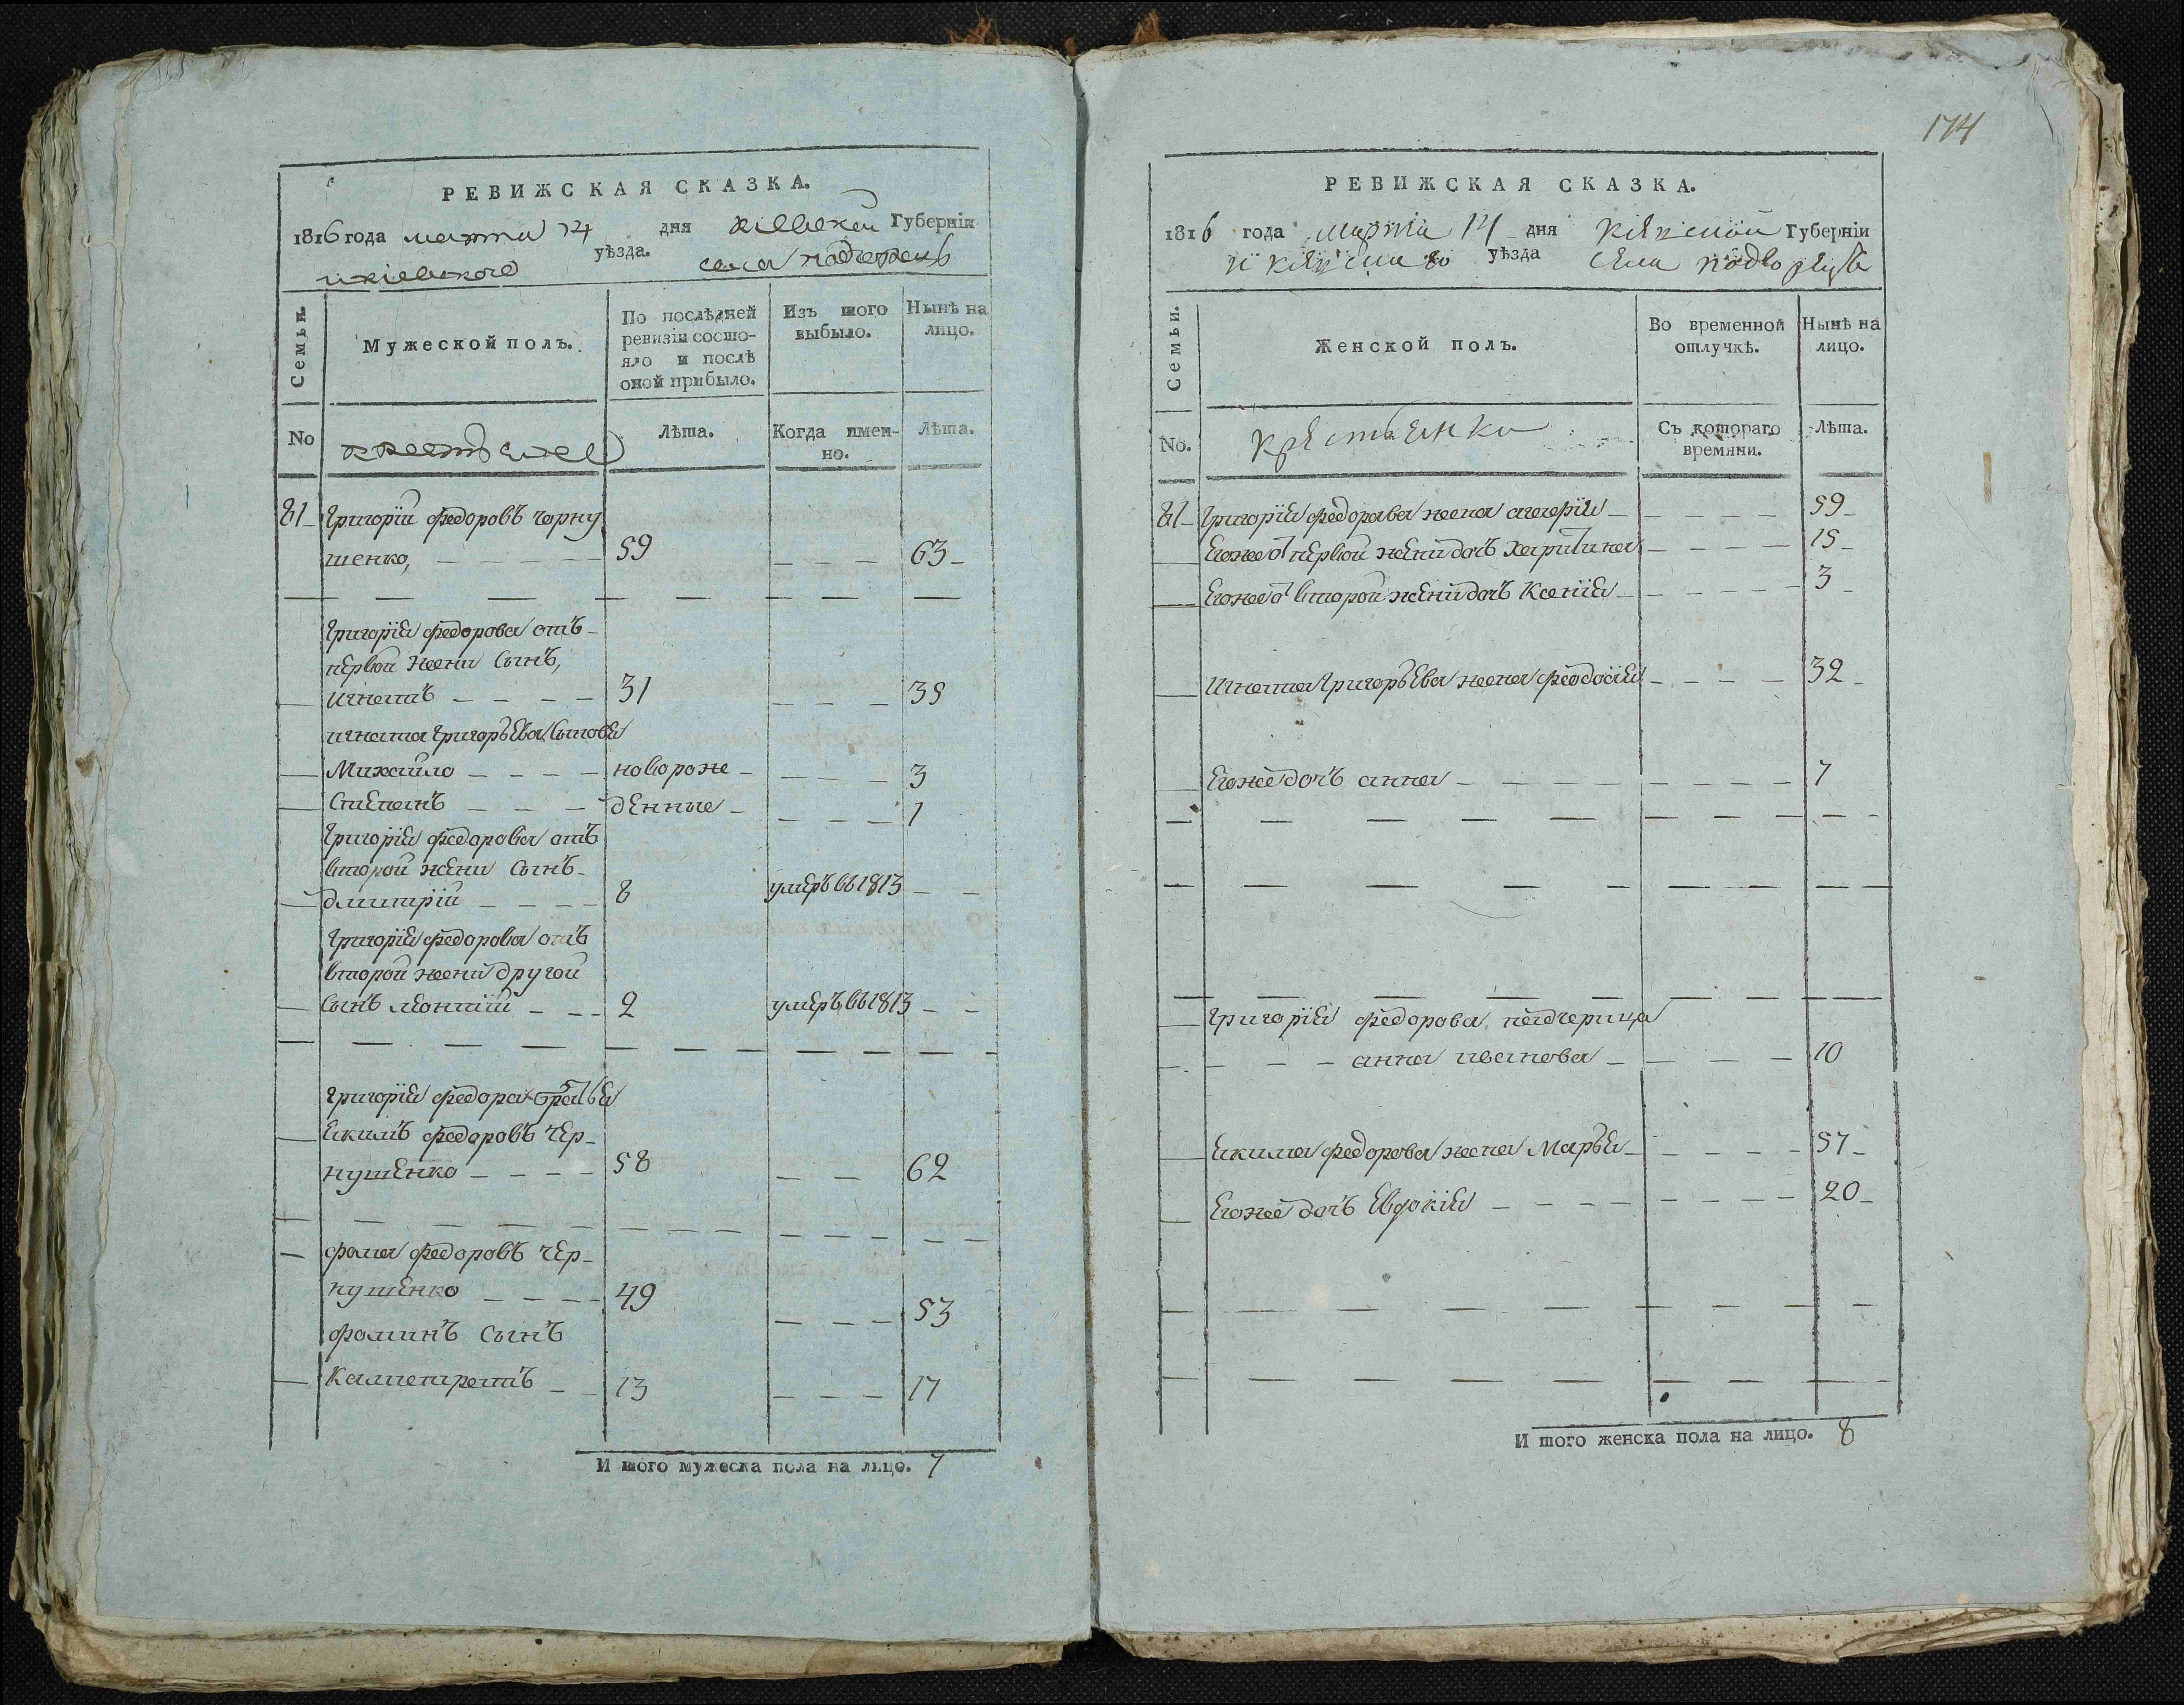 РЕВИЖСКАЯ СКАЗКА.
1816 года марта 14 дня кіевской Губерніи
и кіевского уѣзда. села
Семьи.
Мужеской полъ.
По послѣдней ревизіи состояло и послѣ оной прибыло.
Изъ того выбыло.
Нынѣ на лицо.
No
Лѣта.
Когда имен-
но.
Лѣта.
81 Григорій федоровъ черну
шенко, 59 63
Григорія федорова отъ
первой жени Сынъ,
игнатъ 31 35
игната григорьева Сыновя
Михайло новорожe 3
Степанъ денные 1
Григорія федорова отъ
второй жени Сынъ
дмитрій 8 умеръ вь 1813
Григорія федорова отъ
второй жени другой
Сынъ леонтій 2 умеръ вь 1813
григорія федора братья
екимъ федоровъ чер-
нушенко 58 62
фома федоровъ чер-
нушенко 49 53
фоминъ Сынъ
13 17
И того мужеска пола на лицо. 7
174
РЕВИЖСКАЯ СКАЗКА.
1816 года марта 14 дня кіевской Губерніи
и кіевского уѣзда села
Семьи.
Женской полъ.
Во временной отлучкѣ.
Нынѣ на лицо.
No.
крестьянки
Съ котораго
времяни.
Лѣта.
81 Григорія федорова жена 59
Егоже от первой жени дочь Харитина 15
Егоже от второй жени дочь Ксенія 3
игната Григорьева жена феодосія 32
Егоже дочь анна 7
григорія федорова падчерица
анна иванова 10
екима федорова жена Марья 57
Егоже дочь Евдокія 20
И того женска пола на лицо. 8